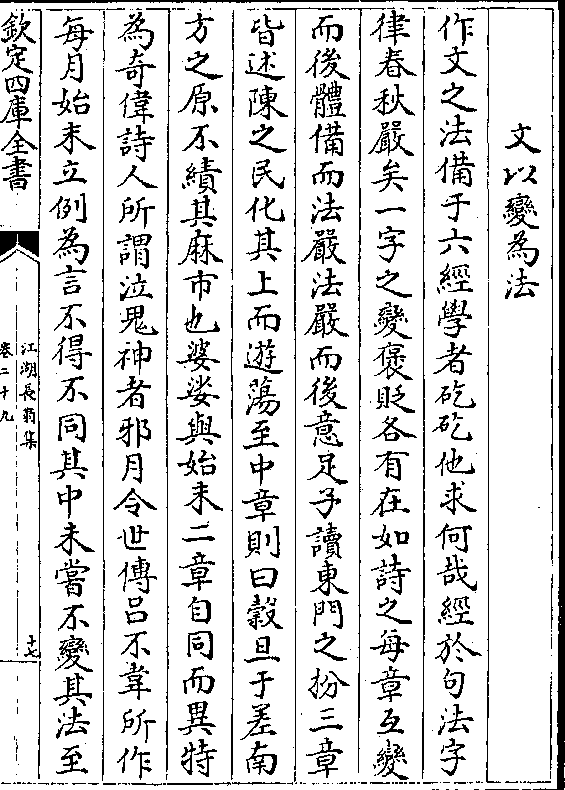 文以變為法
作文之法備于六經學者矻矻他求何哉經於句法字
律春秋嚴矣一字之變褒貶各有在如詩之每章互變
而後體備而法嚴法嚴而後意足予讀東門之枌三章
皆述陳之民化其上而遊蕩至中章則曰榖旦于差南
方之原不績其麻市也婆娑與始末二章自同而異特
為奇偉詩人所謂泣鬼神者邪月令世傳吕不韋所作
每月始末立例為言不得不同其中未嘗不變其法至
欽定四庫全書
江湖長翁集
卷二十九
十七